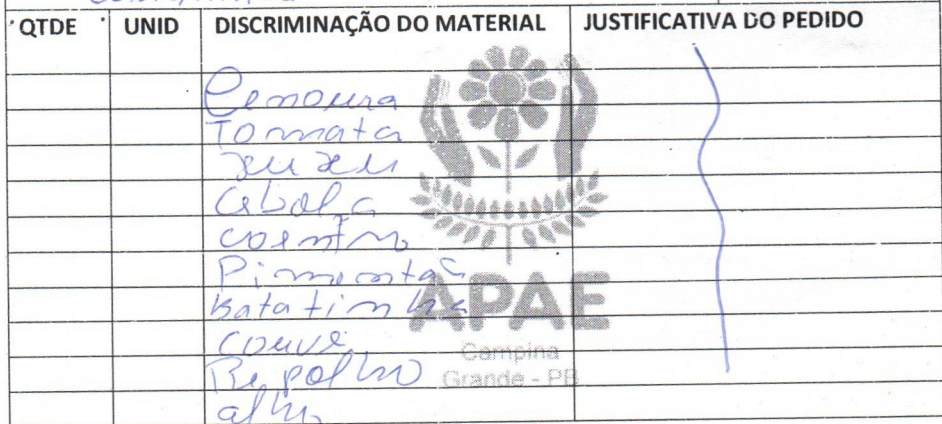 QTDE UNID DISCRIMINAÇÃO DO MATERIAL JUSTIFICATIVA DO PEDIDO
Cenoura
Tomata
xuxu
Cebola
coentro
Pimentão
Batatinha
couve
Repolho
alho
APAE
Campina
Grande - PB